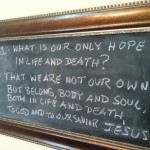 1: WHAT IS OUR ONLY HOPE
IN LIFE AND DEATH?
THAT WE ARE NOT OUR OWN
BUT BELONG, BODY AND SOUL
BOTH IN LIFE AND DEATH
TO GOD AND TO OUR SAVIOR JESUS